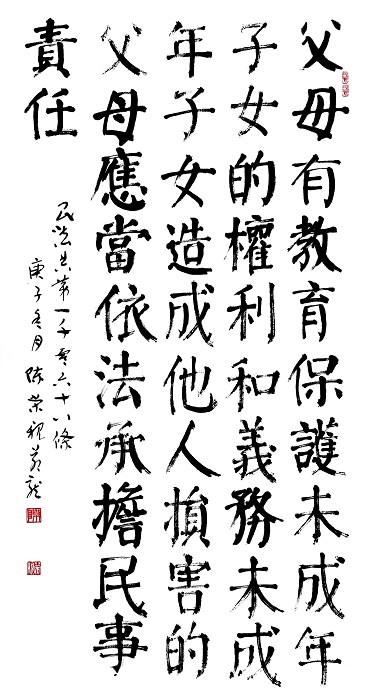 父母有教育保護未成年
子女的權利和義務未成
年子女造成他人損害的
父母應當依法承擔民事
責任
民法典第一千零六十八條
庚子冬月